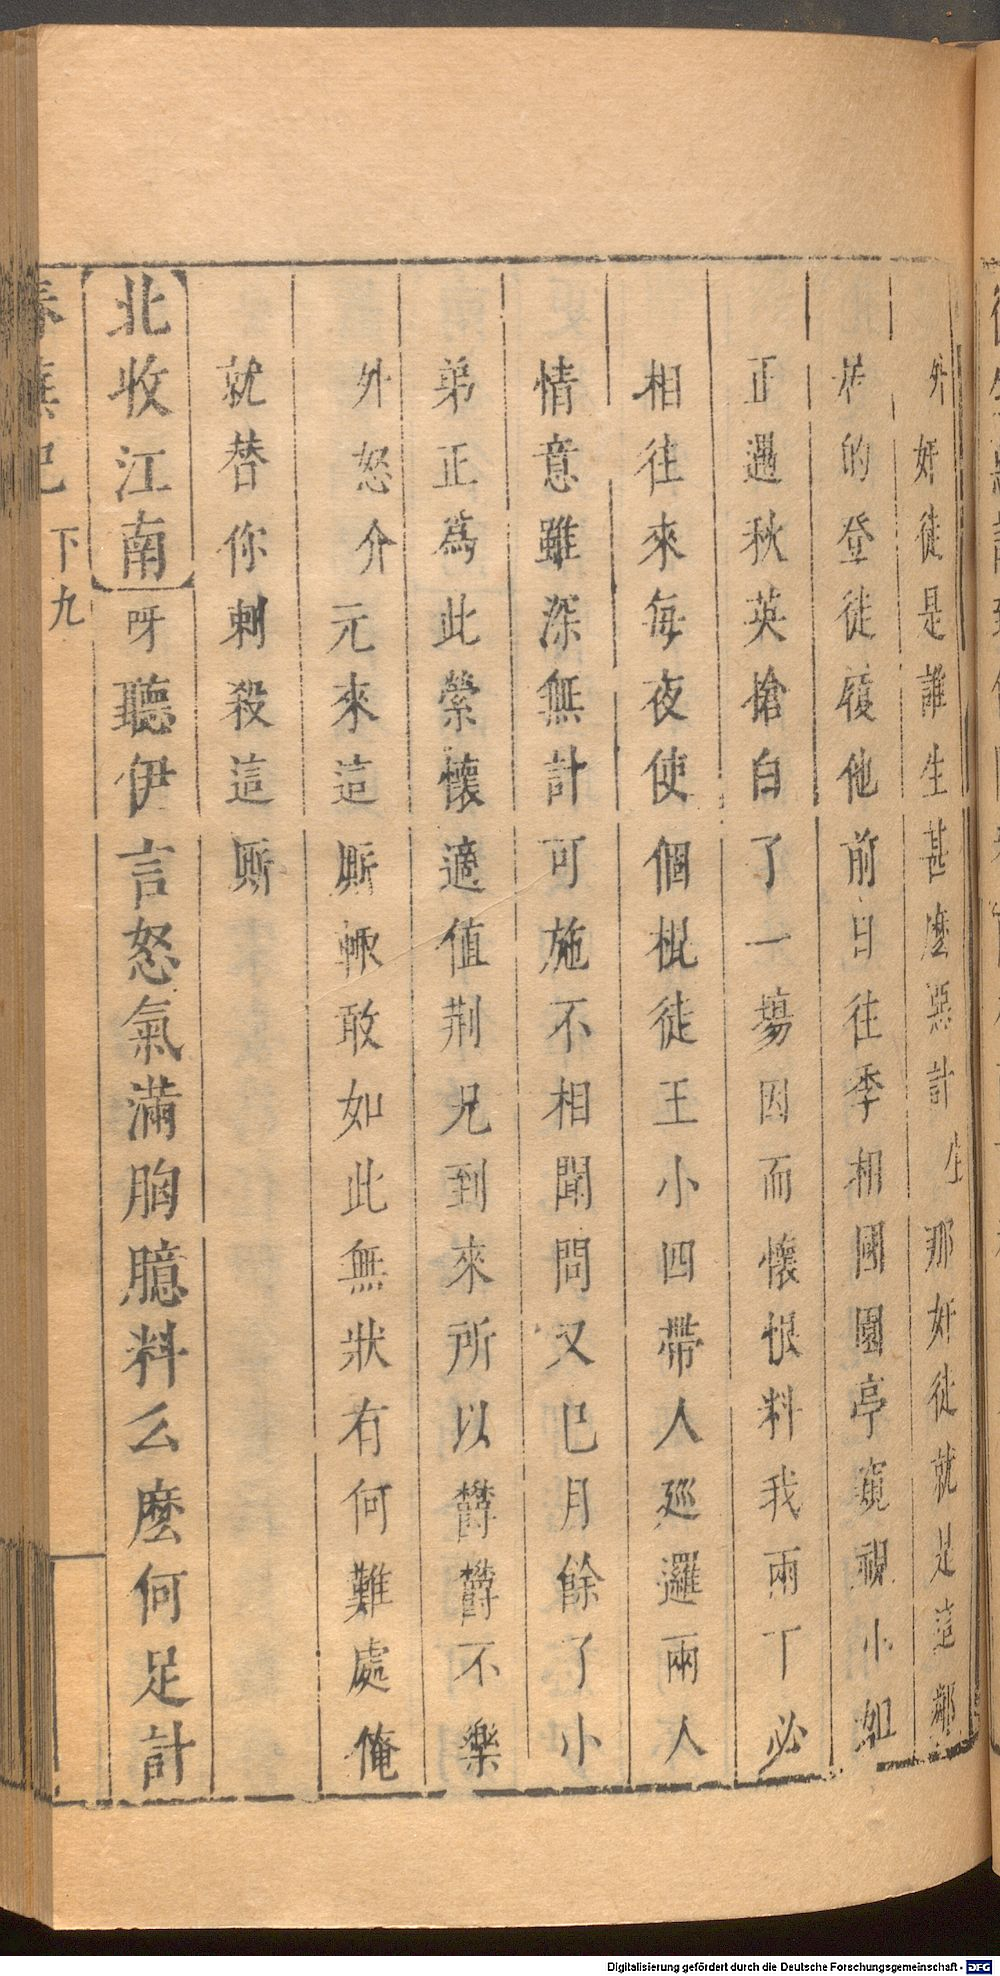 外奸徒是誰生甚麽惡計生那奸徒就是這鄰
居的登徒履他前日往季相國園亭窺視小姐
正遇秋英搶白了一塲因而懷恨料我兩丁必
相往來每夜使個梹徒王小四帶人廵邏兩人
情意雖深無計可施不相聞問又巳月餘了小
弟正爲此縈懷適值荆兄到來所以欝欝不樂
外怒介元來這厮輙敢如此無狀有何難處俺
就替你刺殺這厮
【北收江南】呀聽伊言怒氣滿胸臆料么麽何足計
春蕪記 下 九
Digitalisierung gefördert durch die Deutsche Forschungsgemeinschaft - DFG